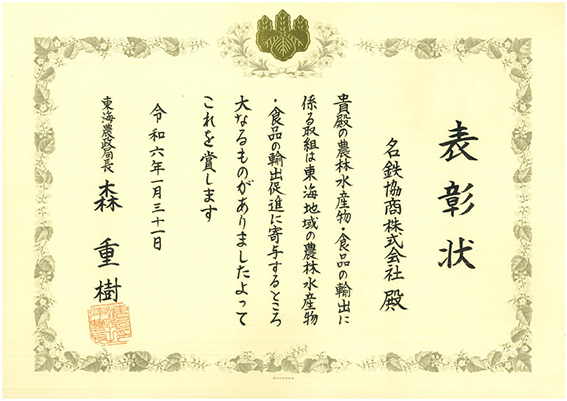 表彰状
名鉄協商株式会社 殿
貴殿の農林水産物・食品の輸出に
係る取組は東海地域の農林水産物
・食品の輸出促進に寄与するところ
大なるものがありましたよって
これを賞します
令和六年一月三十一日
東海農政局長 森 重樹